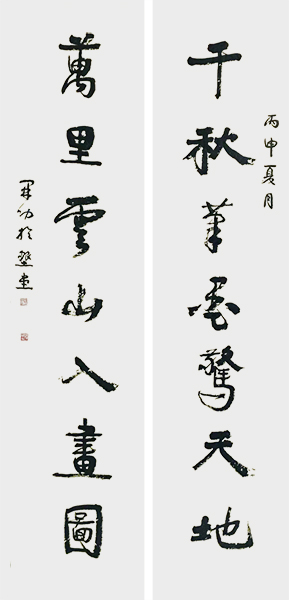 丙申夏月
千秋筆墨驚天地
萬里雲山入畫圖
於